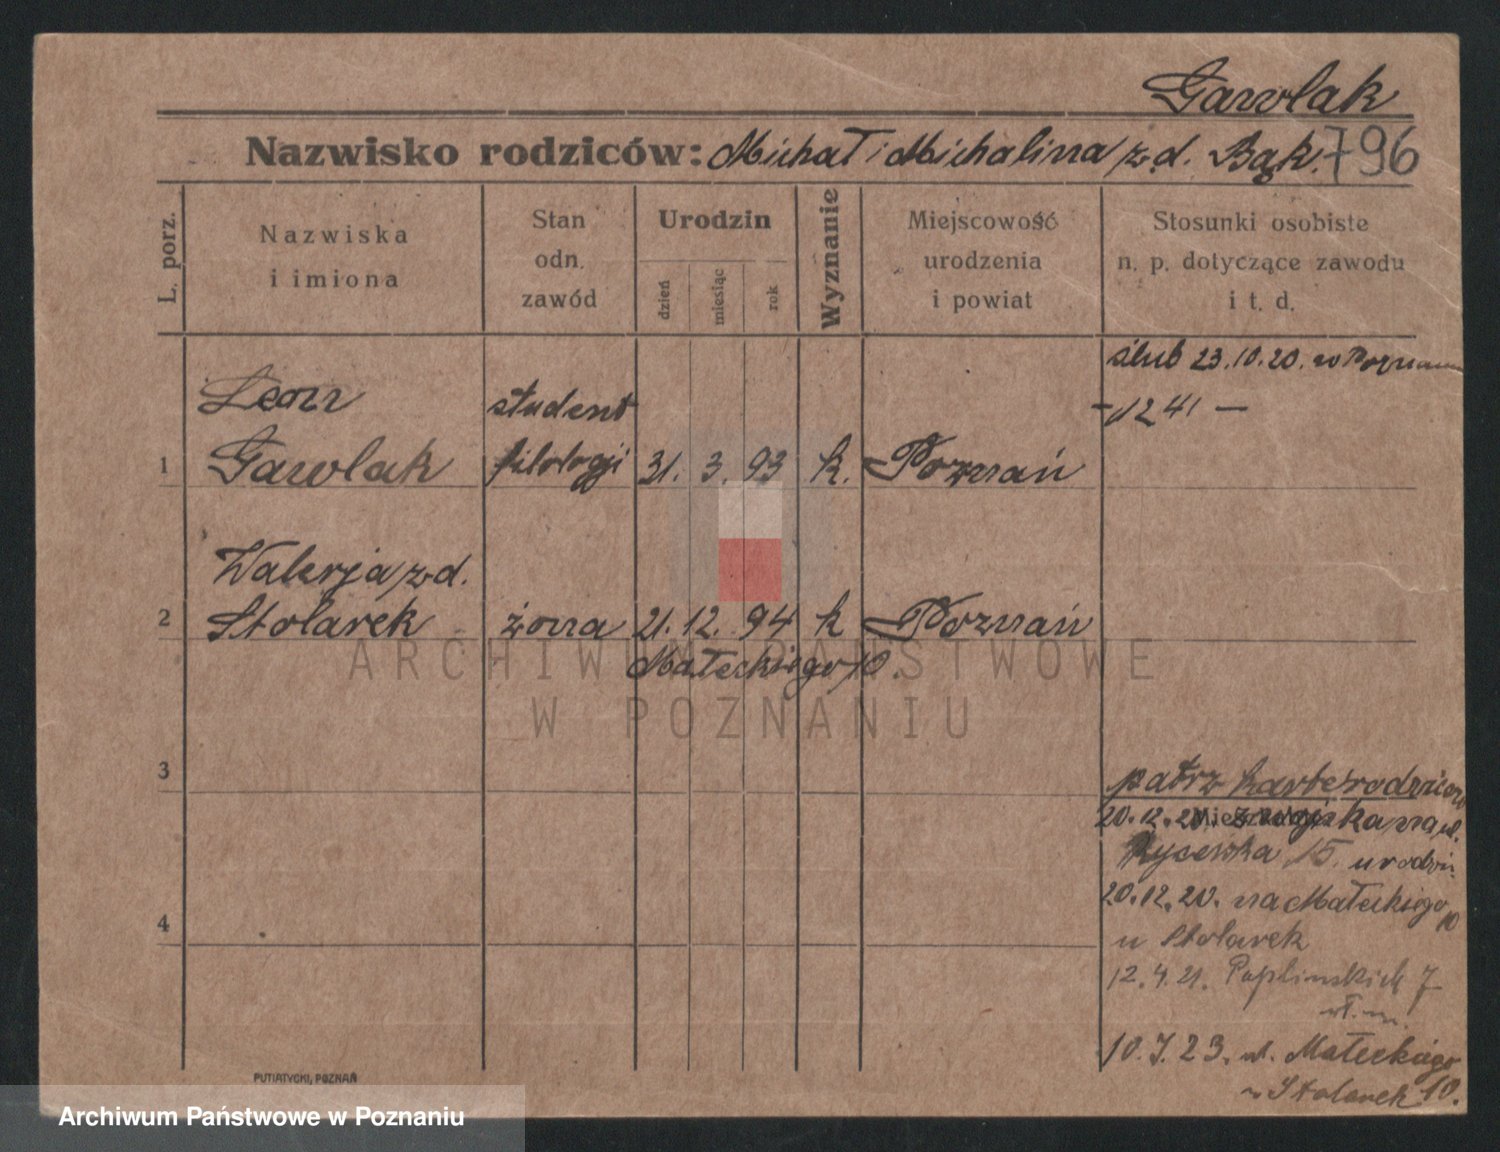 Gawlak
Nazwisko rodziców: Michał i Michalina z d. Bąk. 796
L. porz.
Nazwiska
i imiona
Stan
odn.
zawód
Urodzin
dzień
miesiąc
rok
Wyznanie
Miejscowość
urodzenia
i powiat
Stosunki osobiste
n. p. dotyczące zawodu
i t. d.
ślub 23.10.20. w Poznaniu
- 1241 -
Leon student
1 Gawlak filologji 31. 3. 93 k. Poznań
Walerja z d.
2 Stolarek żona 21. 12. 94 k Poznań
Małeckiego 10.
ARCHIWUM PAŃSTWOWE
W POZNANIU
3
patrz kartę rodziców
20.12.20. z wojska na ul.
Mieszkanie:
Rycerska 15. u rodzic.
20.12.20. na Małeckiego 10
u Stolarek
4
12.4.21. Paplinskich 7
10.7.23. ul. Małeckiego 10.
u Stolarek
PUTIATYCKI, POZNAŃ
Archiwum Państwowe w Poznaniu